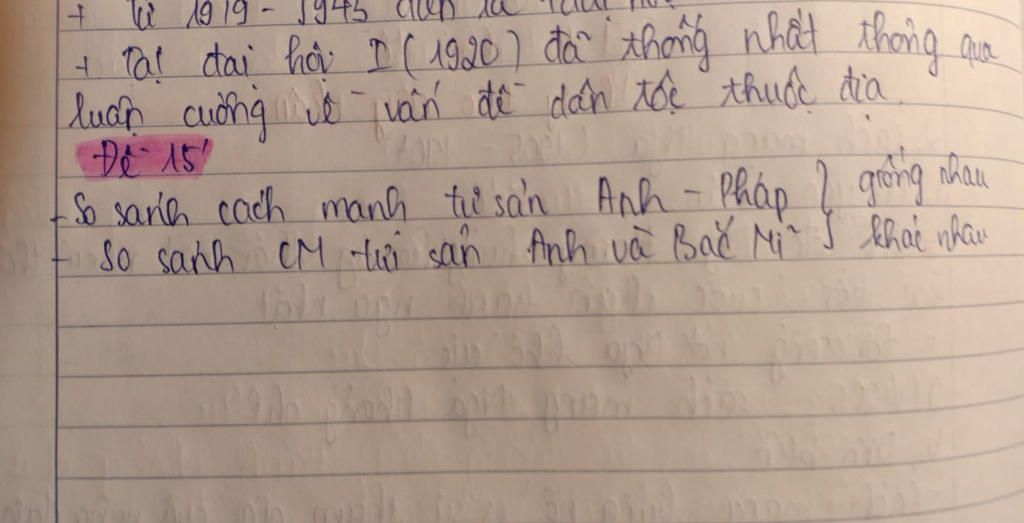 + Từ 1919 - 1943
+ Tại đai hội I (1920) đã thống nhất thông qua
luận cường về vấn đề dân tộc thuộc địa.
Đề 15'
- So sánh cách mạnh tư sản Anh - Pháp } giống nhau
- So sánh CM tư sản Anh và Bắc Mĩ } khác nhau